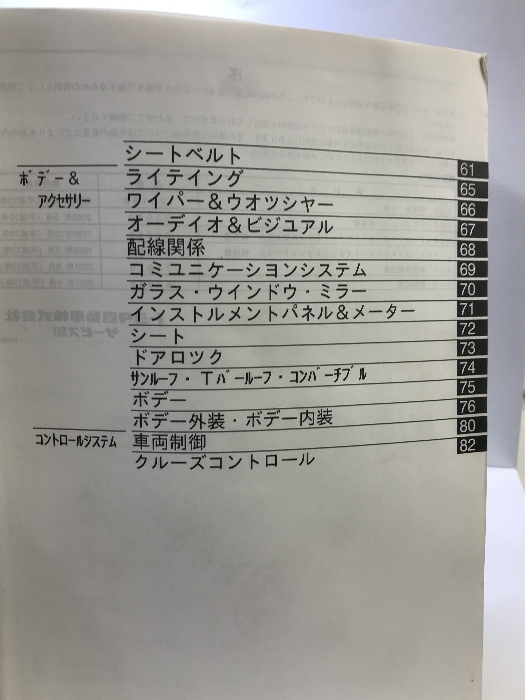 シートベルト 61
ボデー＆ ライテイング 65
アクセサリー ワイパー＆ウオツシャー 66
オーデイオ＆ビジユアル 67
配線関係 68
コミユニケーションシステム 69
ガラス・ウインドウ・ミラー 70
インストルメントパネル＆メーター 71
シート 72
ドアロツク 73
サンルーフ・Tバールーフ・コンバーチブル 74
ボデー 75
ボデー外装・ボデー内装 76
コントロールシステム 車両制御 80
クルーズコントロール 82